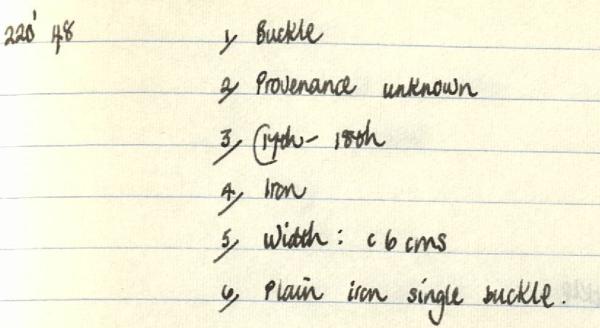 220' 48 1, Buckle
2, Provenance unknown
3, (17th - 18th
4, Iron
5, Width: c 6 cms
6, Plain iron single buckle.